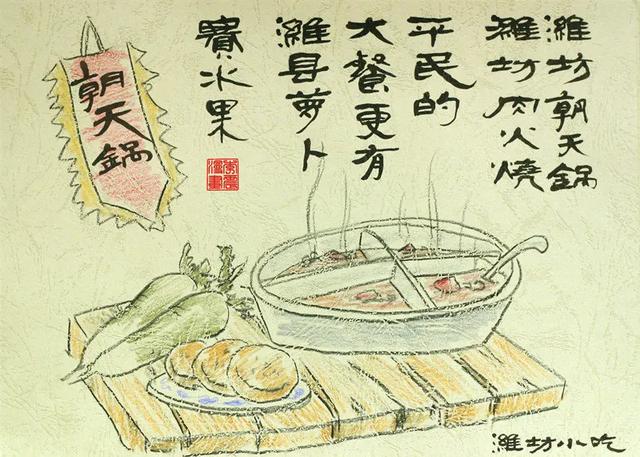 潍坊朝天锅
潍坊肉火烧
平民的
大餐更有
潍县萝卜
赛水果
朝天锅
潍坊小吃